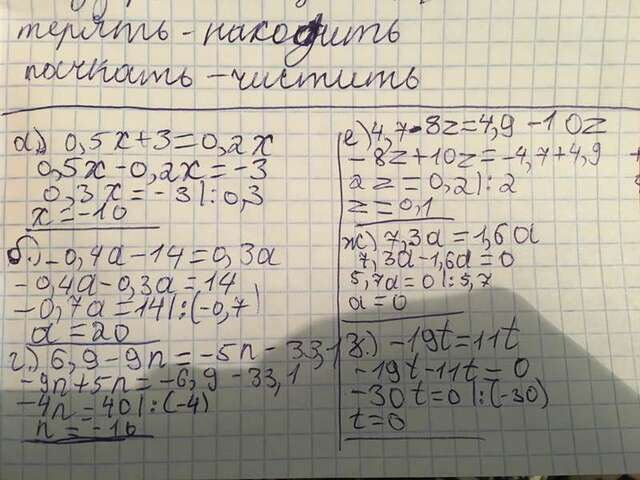 терять - находить
пачкать - чистить
а) 0,5x+3=0,2x
0,5x-0,2x=-3
0,3x=-3|:0,3
x=-10
б) -0,4a-14=0,3a
-0,4a-0,3a=14
-0,7a=14|:(-0,7)
a=20
г) 6,9-9n=-5n-33,1
-9n+5n=-6,9-33,1
-4n=40|:(-4)
n=-10
е) 4,7-8z=4,9-10z
-8z+10z=-4,7+4,9
2z=0,2|:2
z=0,1
ж) 7,3a=1,6a
7,3a-1,6a=0
5,7a=0|:5,7
a=0
з) -19t=11t
-19t-11t=0
-30t=0|:(-30)
t=0